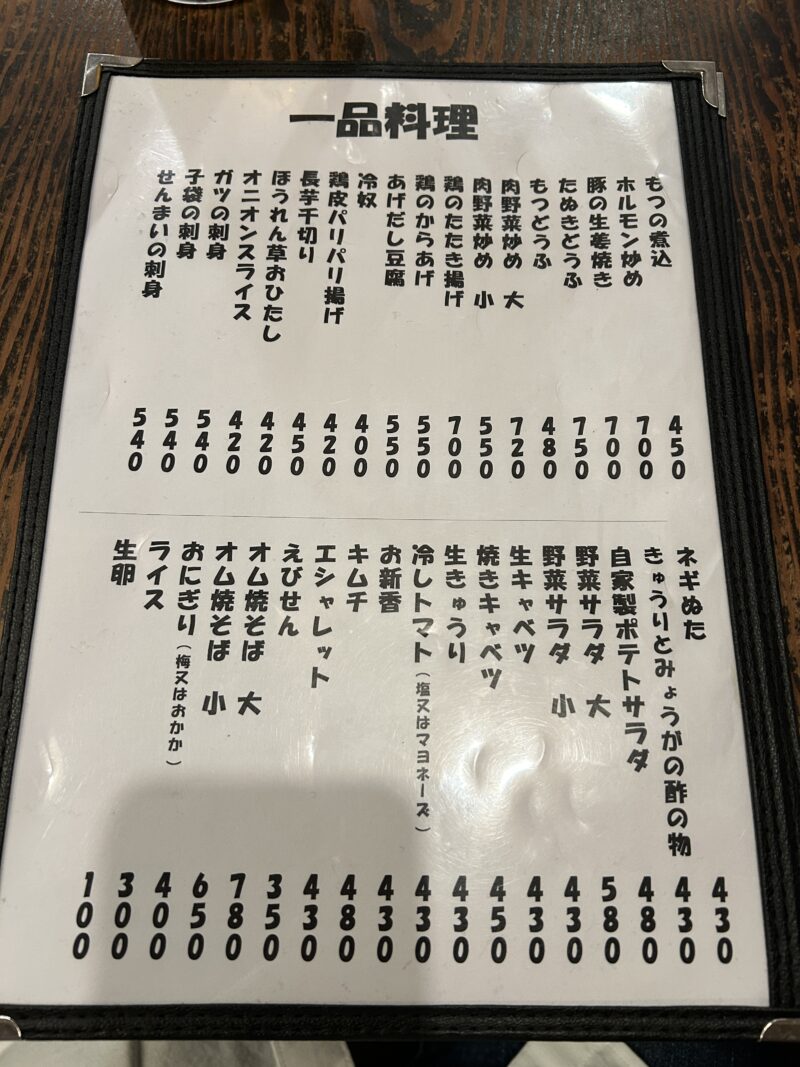 一品料理
もつの煮込 450
ホルモン炒め 700
豚の生姜焼き 700
たぬきどうふ 750
もつどうふ 480
肉野菜炒め 大 720
肉野菜炒め 小 550
鶏のたたき揚げ 700
鶏のからあげ 550
あげだし豆腐 550
冷奴 400
鶏皮パリパリ揚げ 420
長芋千切り 450
ほうれん草おひたし 420
オニオンスライス 420
ガツの刺身 540
子袋の刺身 540
せんまいの刺身 540
ネギぬた 430
きゅうりとみょうがの酢の物 430
自家製ポテトサラダ 480
野菜サラダ 大 580
野菜サラダ 小 430
生キャベツ 430
焼きキャベツ 450
生きゅうり 430
冷しトマト(塩又はマヨネーズ) 430
お新香 430
キムチ 480
エシャレット 430
えびせん 350
オム焼そば 大 780
オム焼そば 小 650
おにぎり(梅又はおかか) 400
ライス 300
生卵 100